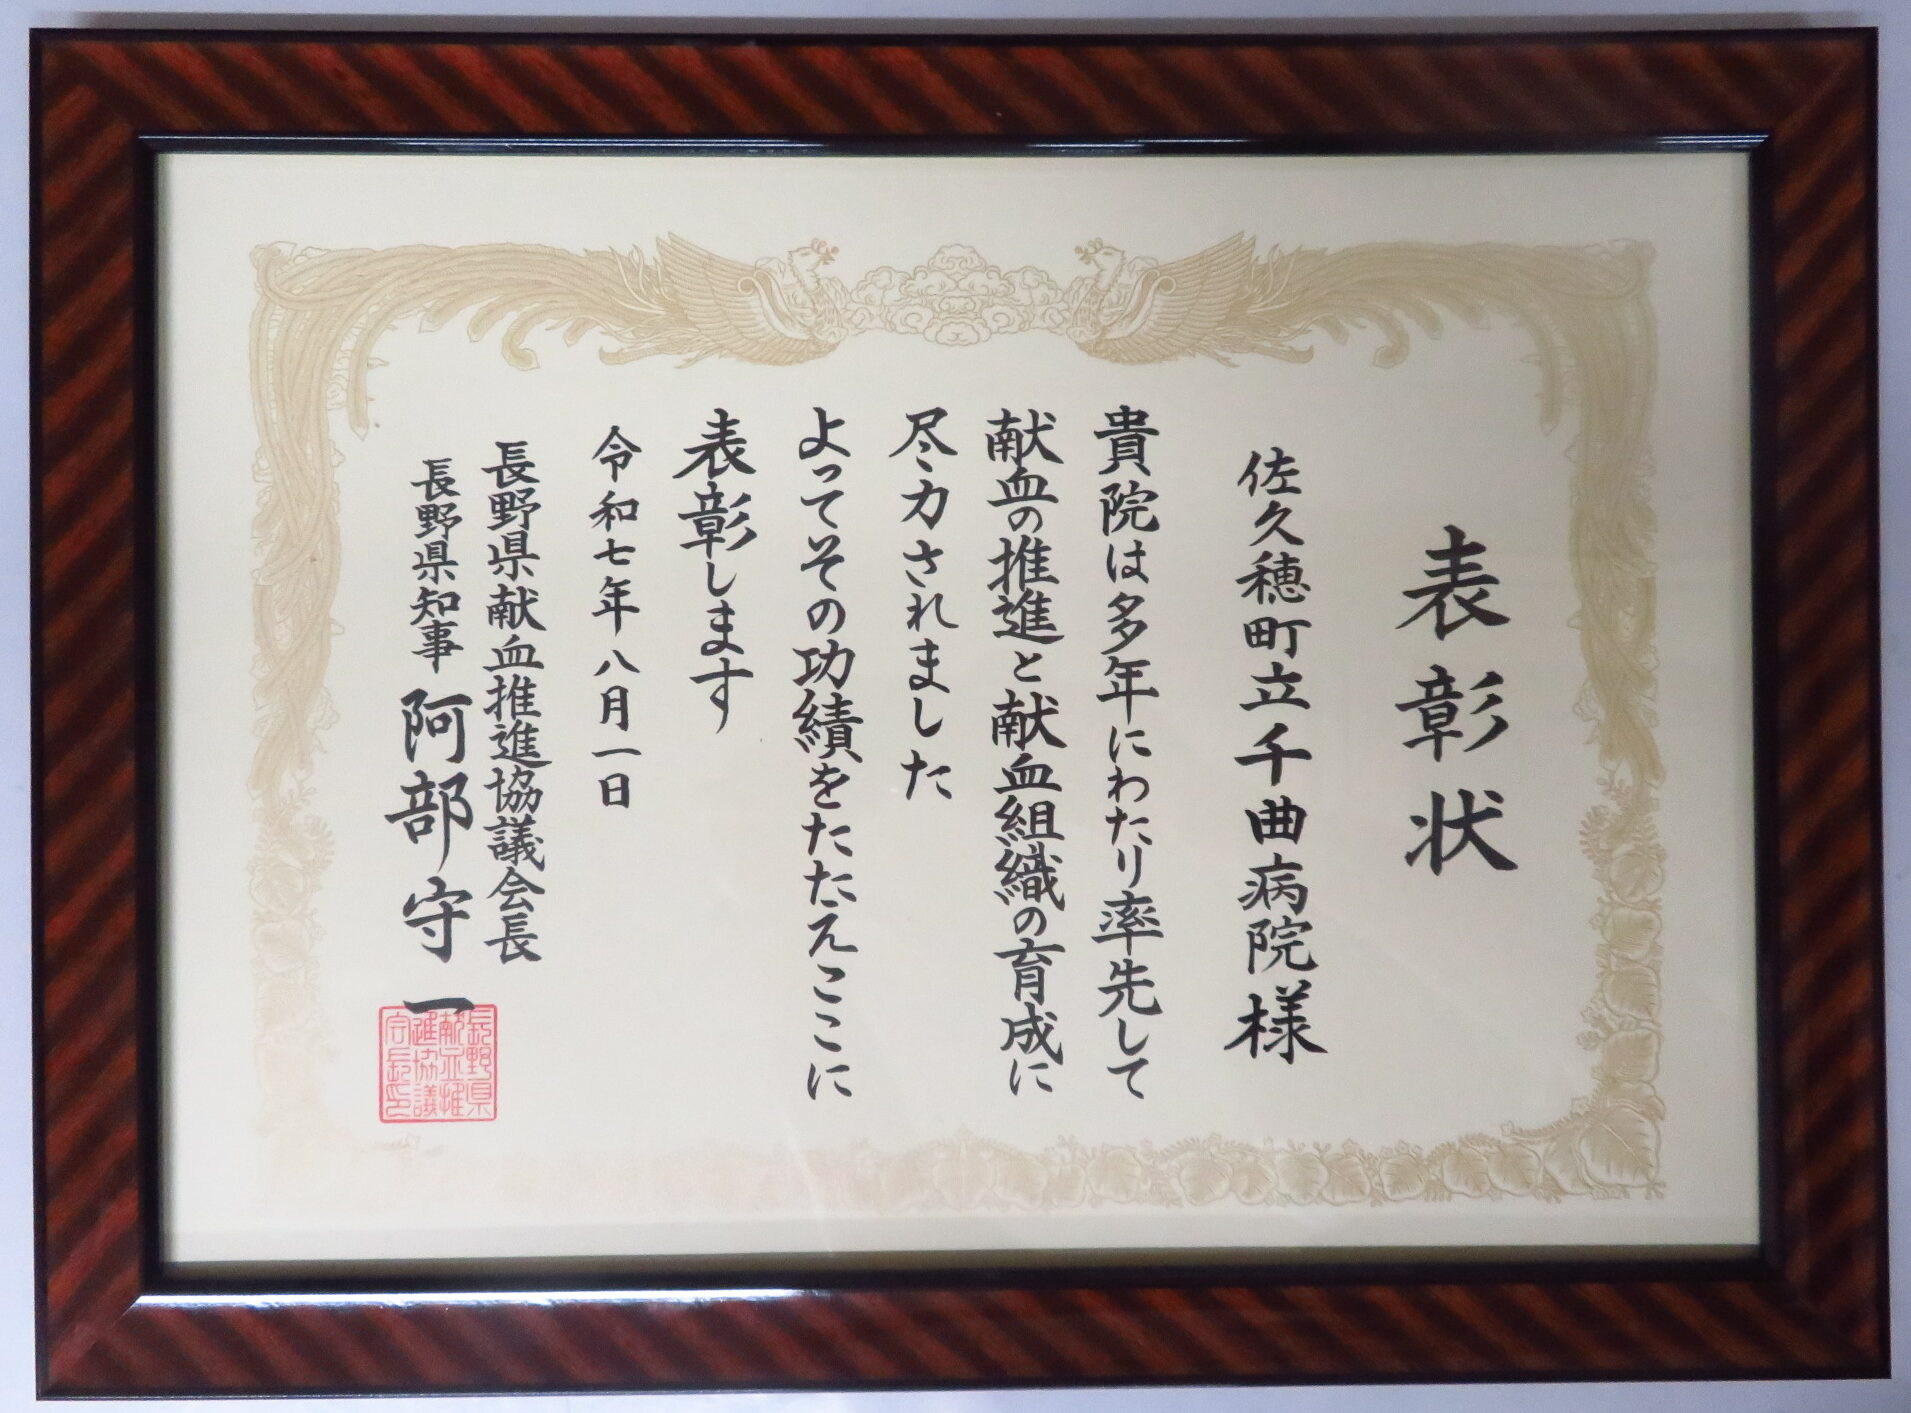 表彰状
佐久穂町立千曲病院様
貴院は多年にわたり率先して
献血の推進と献血組織の育成に
尽力されました
よってその功績をたたえここに
表彰します
令和七年八月一日
長野県献血推進協議会長
長野県知事 阿部守一
長野県
献血推
進協議
会長印